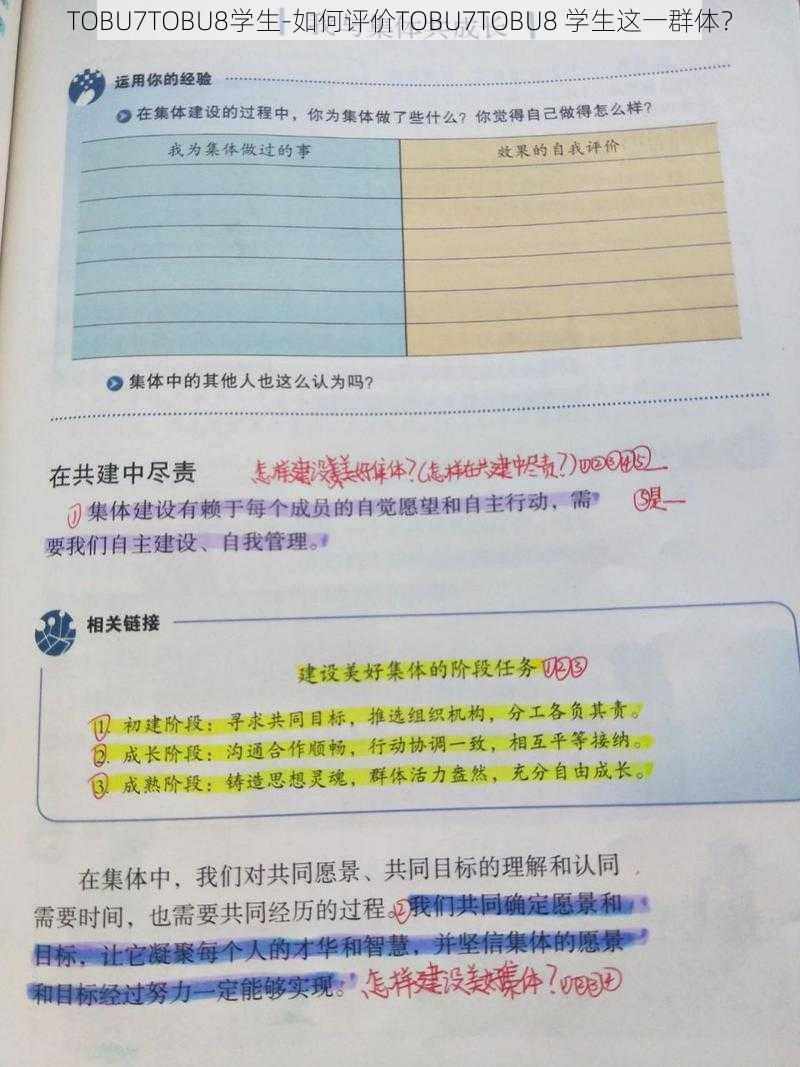 TOBU7TOBU8学生-如何评价TOBU7TOBU8 学生这一群体?
运用你的经验
在集体建设的过程中，你为集体做了些什么？你觉得自己做得怎么样？
我为集体做过的事 效果的自我评价
集体中的其他人也这么认为吗？
在共建中尽责 怎样建设美好集体?(怎样在共建中尽责?)①②③④⑤
①集体建设有赖于每个成员的自觉愿望和自主行动，需 ⑤是
要我们自主建设、自我管理。
相关链接
建设美好集体的阶段任务①②③
①初建阶段：寻求共同目标，推选组织机构，分工各负其责。
②成长阶段：沟通合作顺畅，行动协调一致，相互平等接纳。
③成熟阶段：铸造思想灵魂，群体活力盎然，充分自由成长。
在集体中，我们对共同愿景、共同目标的理解和认同
需要时间，也需要共同经历的过程。②我们共同确定愿景和
目标，让它凝聚每个人的才华和智慧，并坚信集体的愿景
和目标经过努力一定能够实现。怎样建设美好集体?①②③④